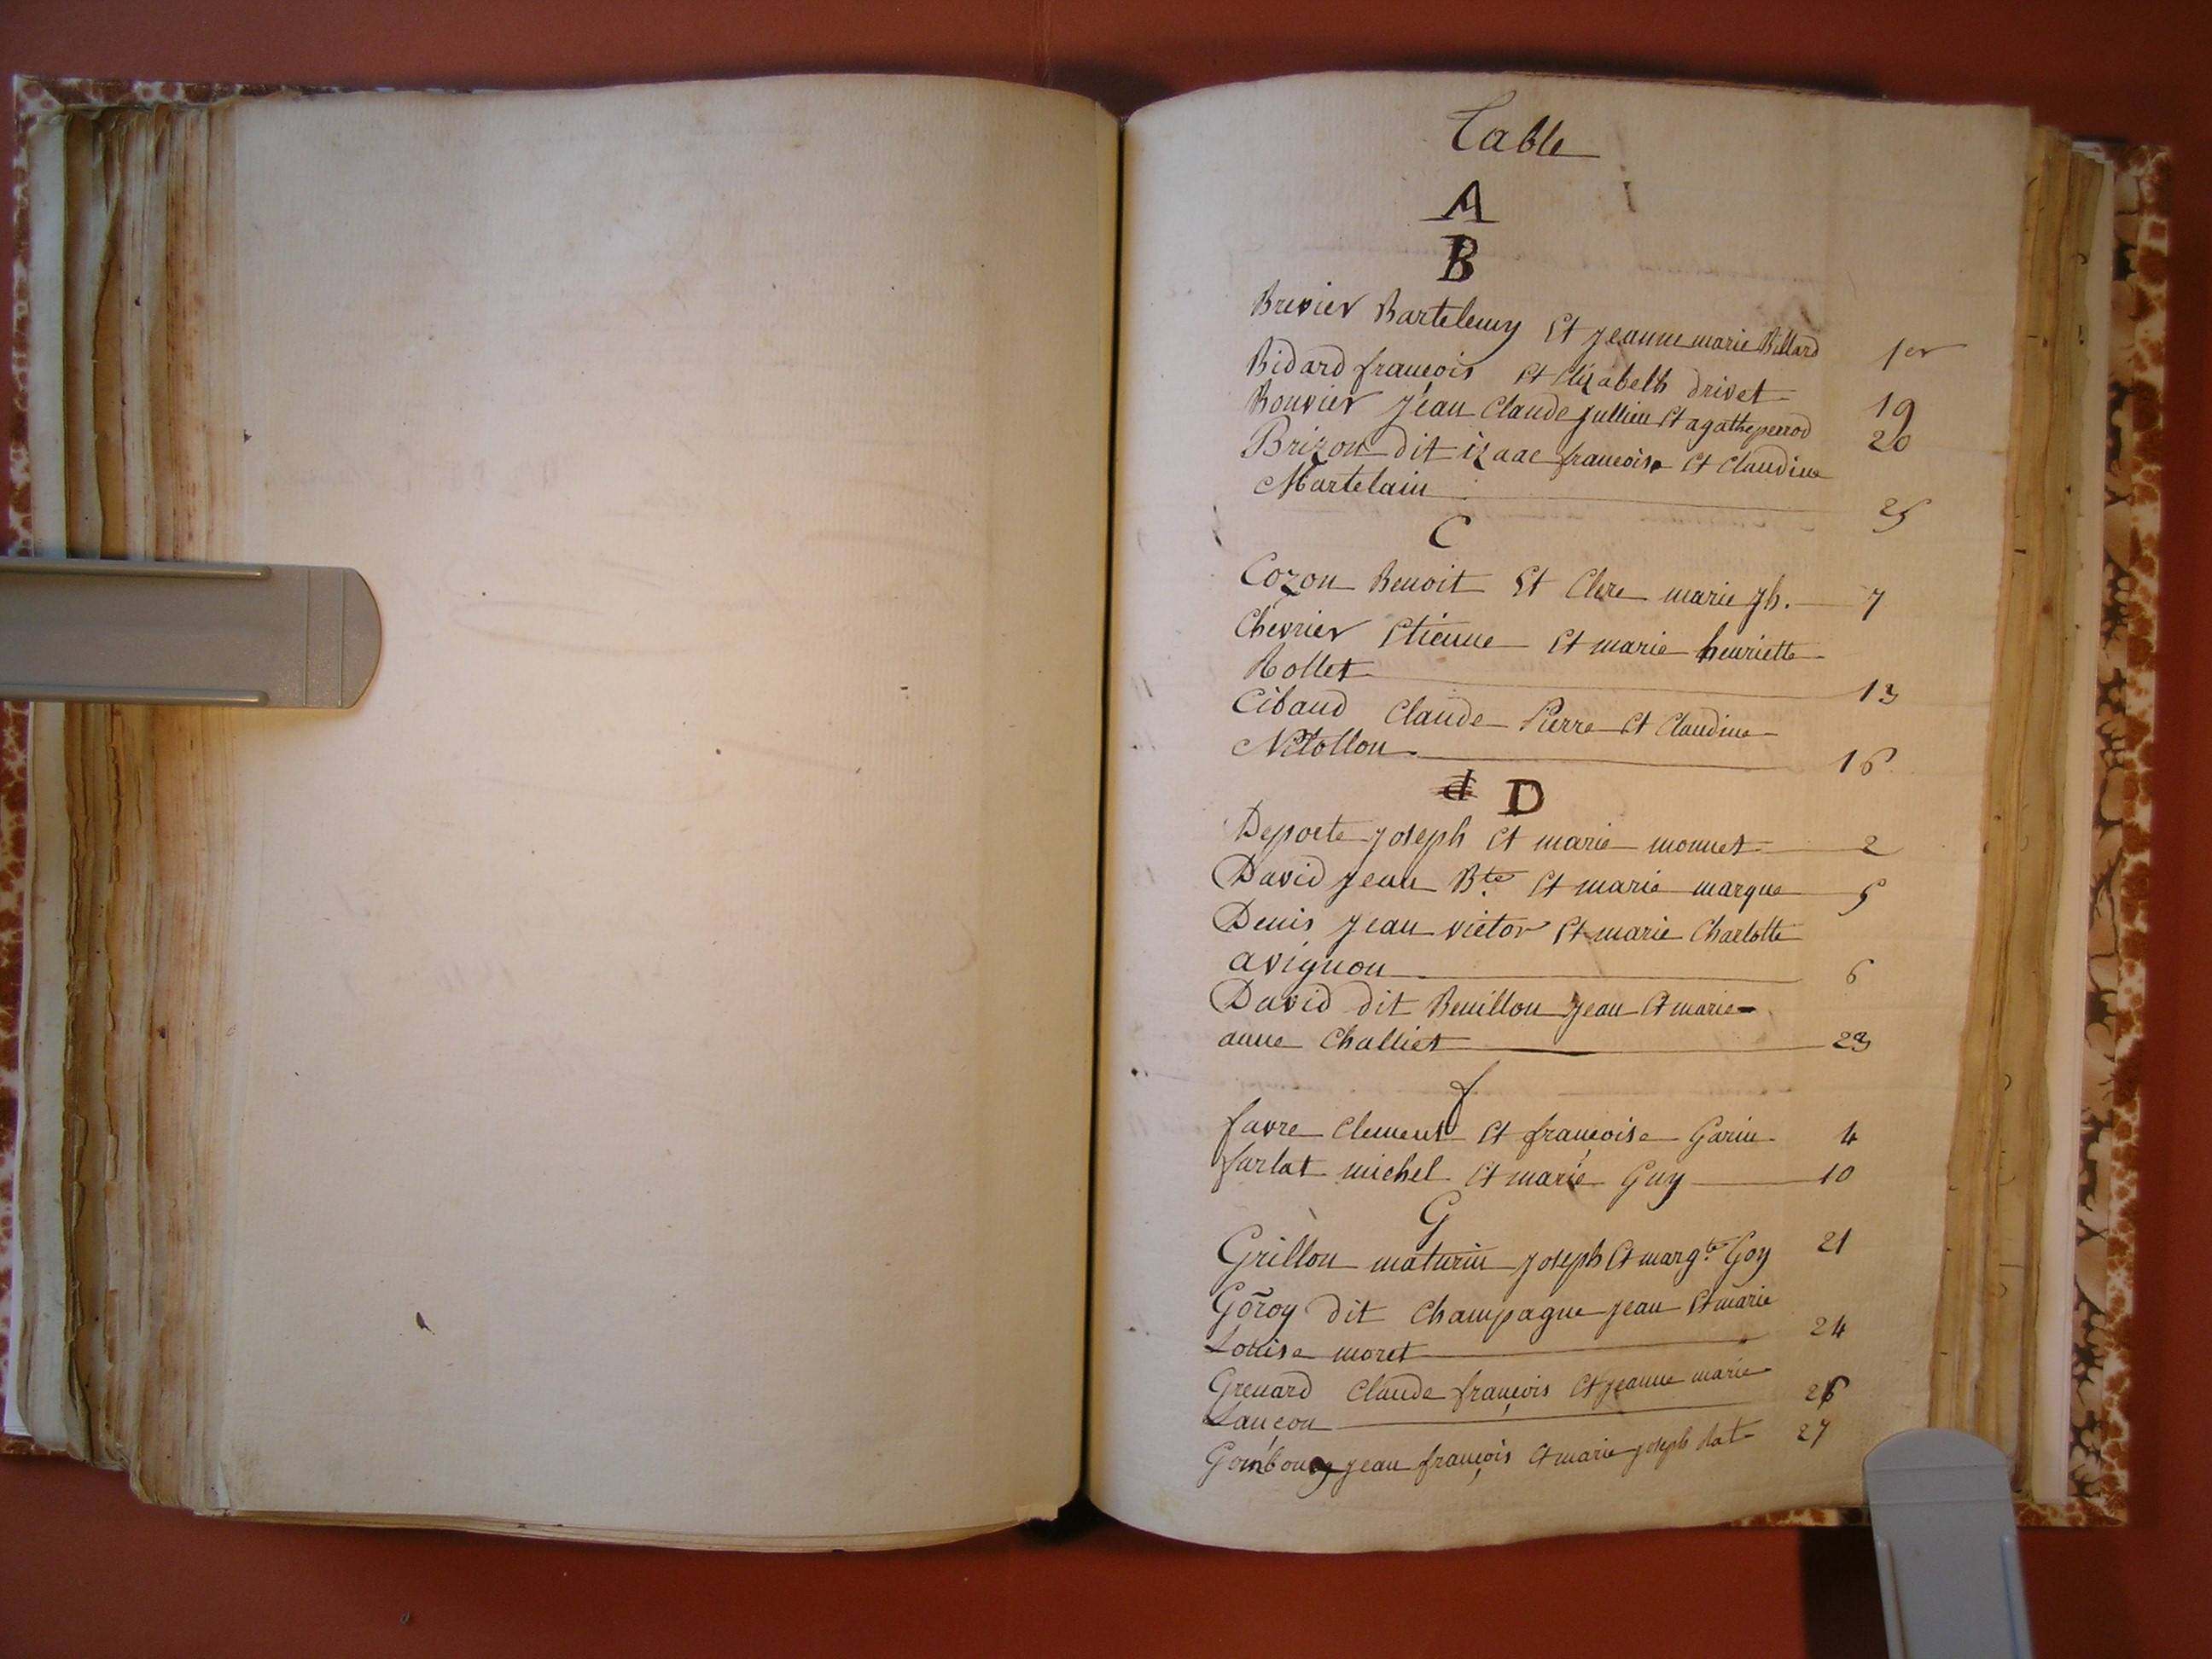 Table
A
B
Brevier Bartelemy Et jeanne marie Billard 1er
Bidard françois Et Elizabeth drivet 19
Bouvier jean Claude jullien Et agathe perrod 20
Brizon dit izaac francoise Et Claudine
Martelain 25
C
Cozon Benoit Et Clere marie jh. 7
Chevrier Etienne Et marie henriette
Rollet 13
Cibaud Claude Pierre Et Claudine
Nitollon 16
d D
Deporte joseph Et marie monnet 2
David jean Bte Et marie marque 5
Denis jean victor Et marie Charlotte
avignon 6
David dit Benillon jean Et marie
anne Challiet 23
f
favre Clement Et françoise Garin 4
furlat michel Et marie Guy 10
G
Grillon maturin joseph Et margte Goy 21
Goroy dit Champagne jean Et marie
Louise moret 24
Grenard Claude françois Et jeanne marie
Lançon 26
jean françois Et marie joseph Rat 27